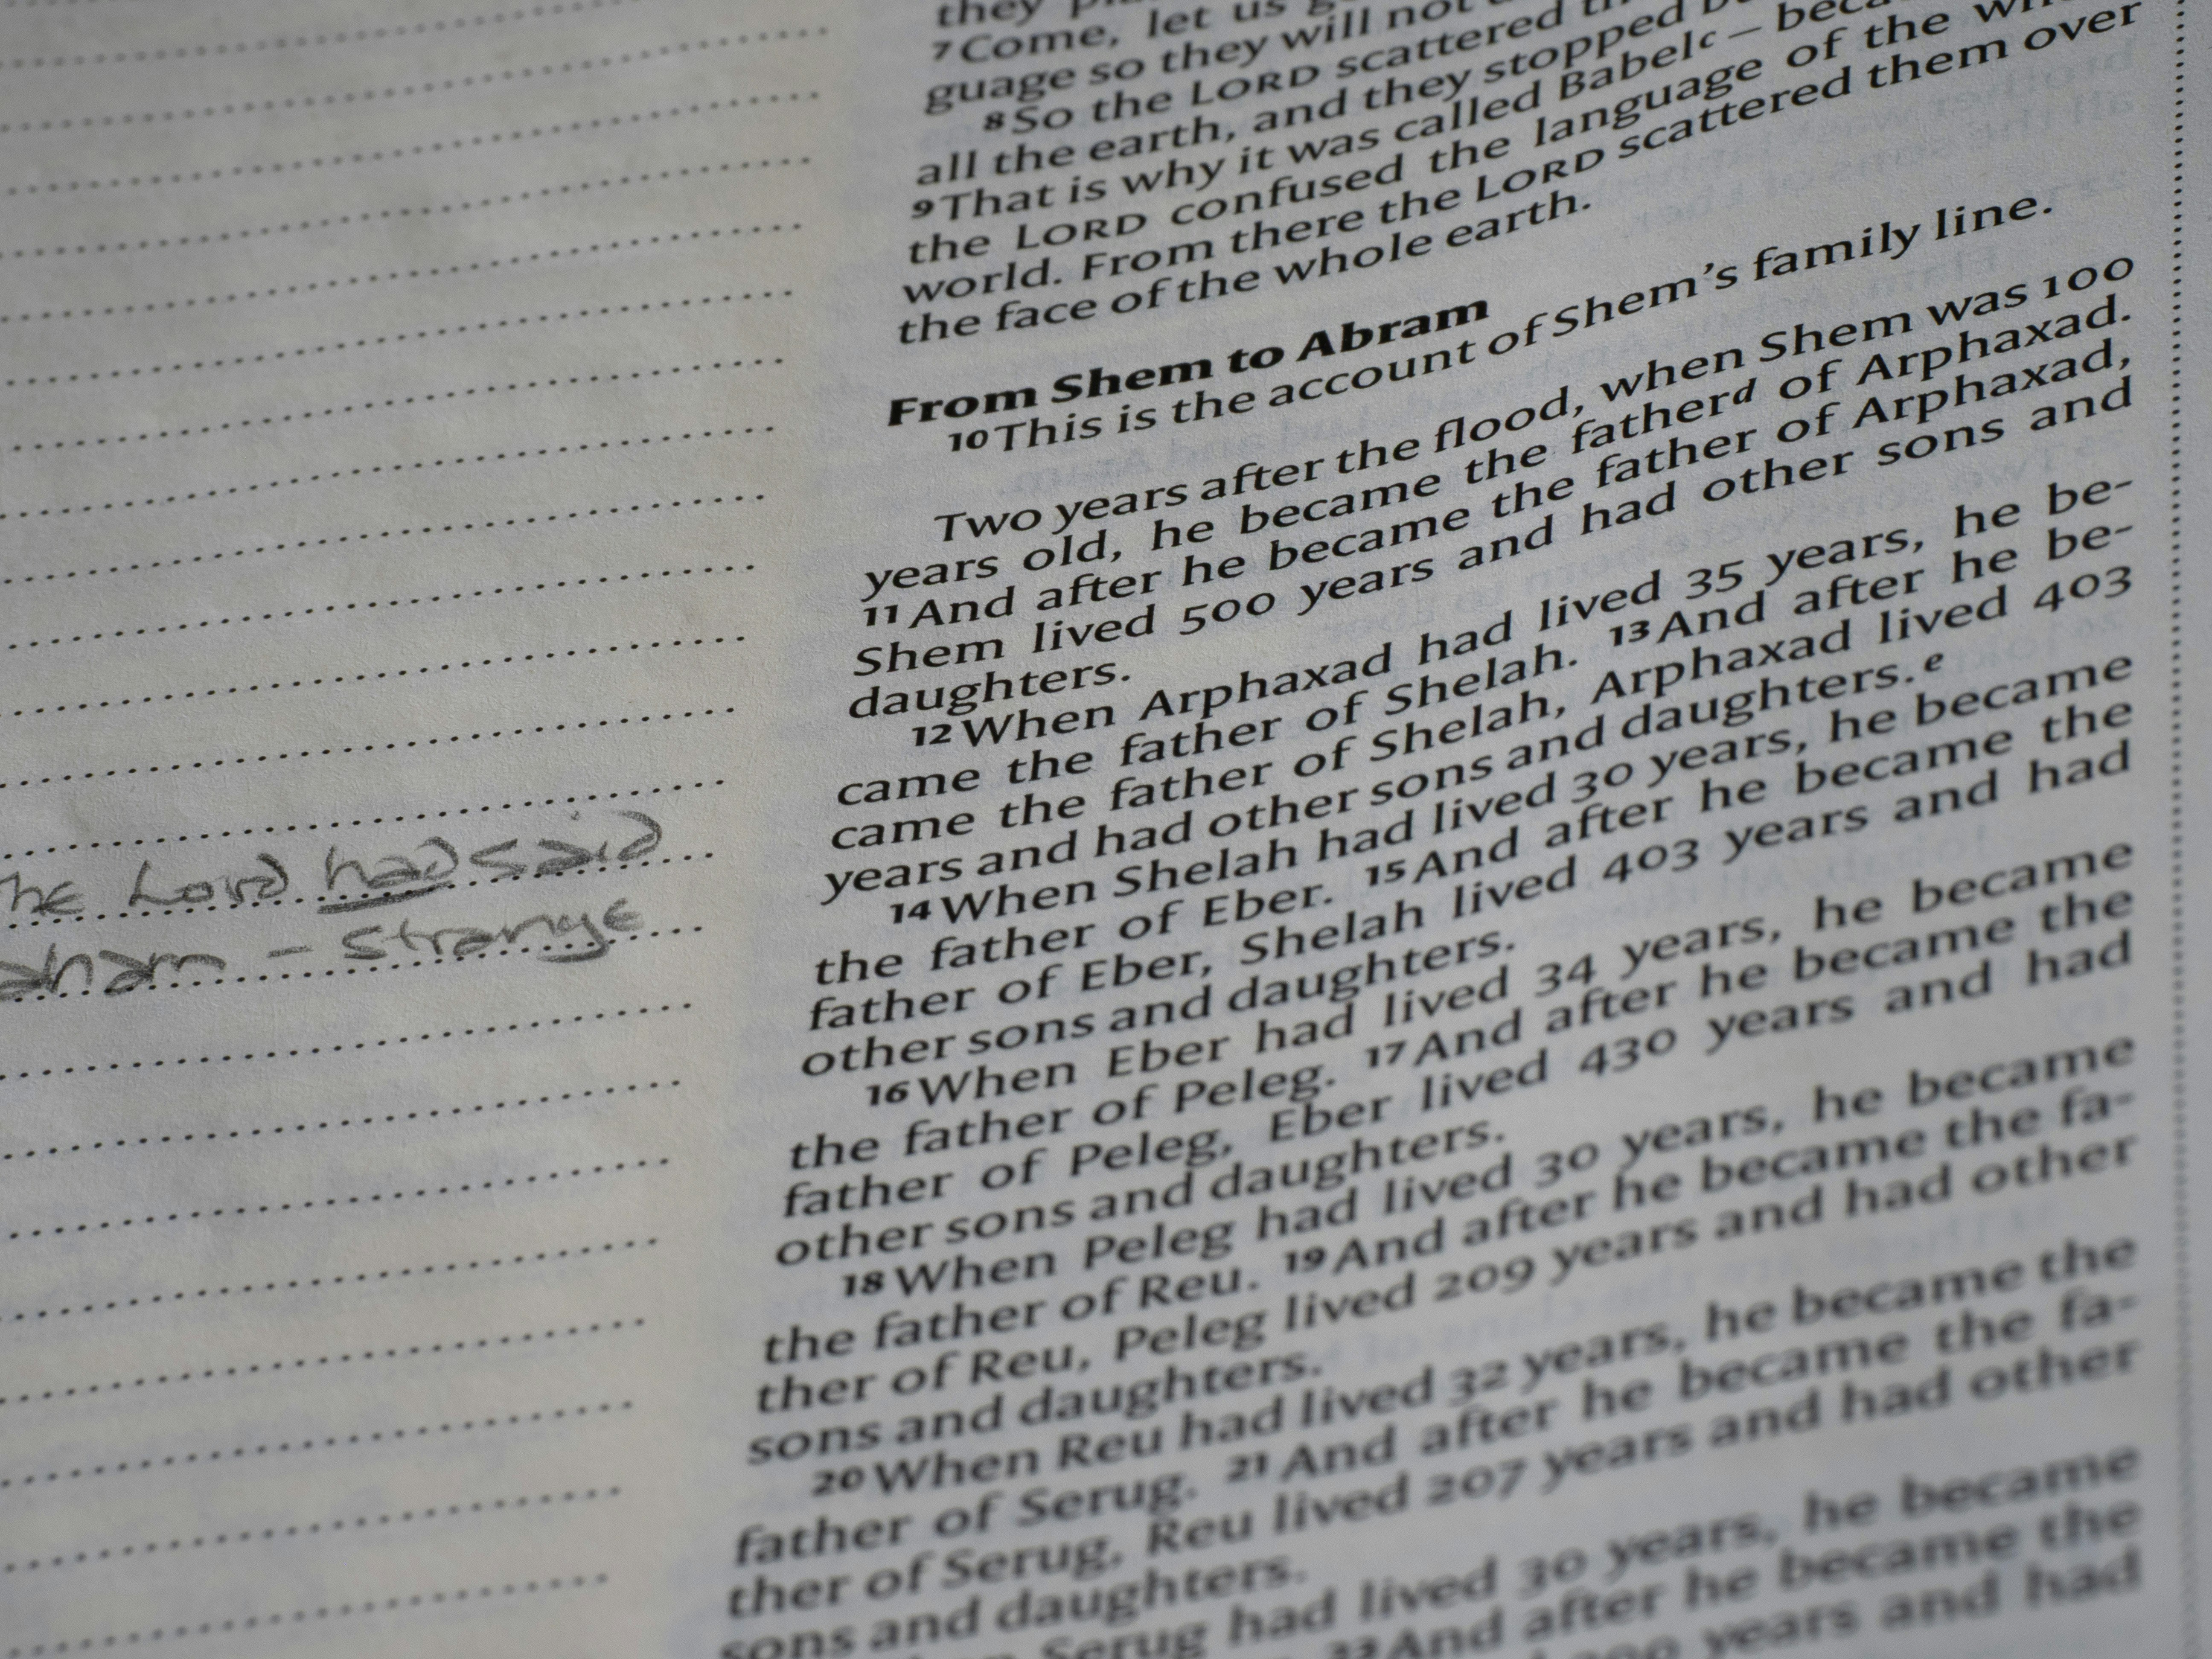 he Lord had said
aham – strange
they
7 Come, let us
guage so they will not
8 So the LORD scattered
all the earth, and they stopped
9 That is why it was called Babel c – because
the LORD confused the language of the
world. From there the LORD scattered them over
the face of the whole earth.
From Shem to Abram
10 This is the account of Shem's family line.
Two years after the flood, when Shem was 100
years old, he became the father d of Arphaxad.
11 And after he became the father of Arphaxad,
Shem lived 500 years and had other sons and
daughters.
12 When Arphaxad had lived 35 years, he be-
came the father of Shelah. 13 And after he be-
came the father of Shelah, Arphaxad lived 403
years and had other sons and daughters. e
14 When Shelah had lived 30 years, he became
the father of Eber. 15 And after he became the
father of Eber, Shelah lived 403 years and had
other sons and daughters.
16 When Eber had lived 34 years, he became
the father of Peleg. 17 And after he became the
father of Peleg, Eber lived 430 years and had
other sons and daughters.
18 When Peleg had lived 30 years, he became
the father of Reu. 19 And after he became the fa-
ther of Reu, Peleg lived 209 years and had other
sons and daughters.
20 When Reu had lived 32 years, he became the
father of Serug. 21 And after he became the fa-
ther of Serug, Reu lived 207 years and had other
sons and daughters.
Serug had lived 30 years, he became
And after he became the
years and had